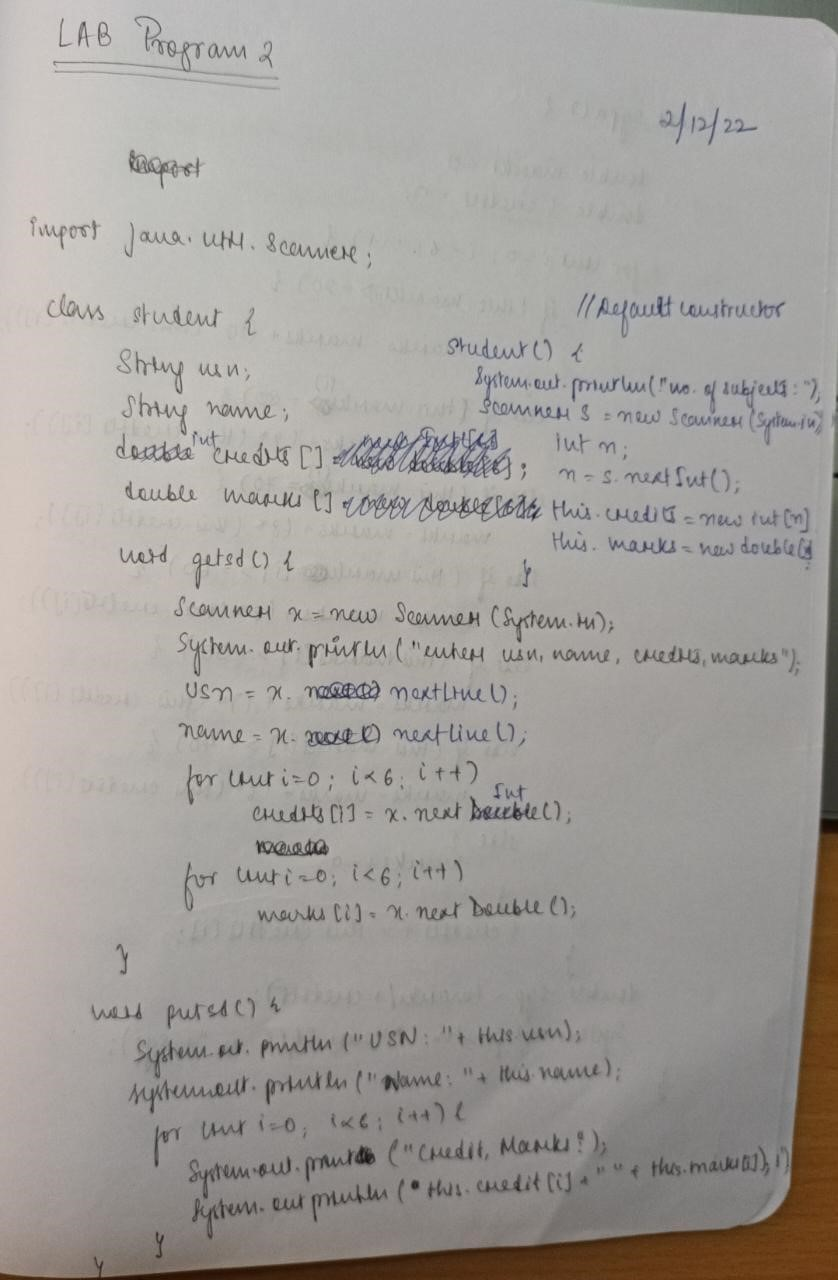 LAB Program 2
2/12/22
import java.util.Scanner;
class student {
String usn;
String name;
int credits [] ;
double marks []
//Default constructor
student() {
System.out.println("no. of subjects:");
Scanner s = new Scanner(System.in)
int n;
n = s.nextInt();
this.credits = new int[n]
this.marks = new double[
}
void getsd() {
Scanner x = new Scanner (System.in);
System.out.println ("enter usn, name, credits, marks");
usn = x. nextLine();
name = x. nextline();
for (int i=0; i<6; i++)
credits[i] = x. next Int();
for (int i=0; i<6; i++)
marks[i] = x. next Double ();
}
void putsd() {
System.out. println ("USN: "+ this.usn);
System.out. println ("Name: "+ this.name);
for (int i=0; i<6; i++) {
System.out. print ("Credit, Marks:");
System.out println ( this.credit[i] + " " + this.marks[i]);
}
}